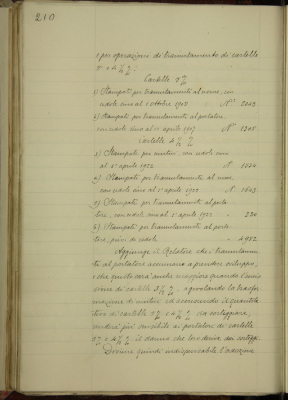 210
o per operazioni di tramutamento di cartelle
5 e 4 ½ %:
Cartelle 5%
1) Stampati per tramutamenti al nome, con
cedole sino al 1 ottobre 1907 N°
2) Stampati per tramutamenti al portatore
con cedole sino al 1° aprile 1907 N°
Cartelle 4 ½ %
1) Stampati per mutui, con cedole sino
al 1° aprile 1922 N. 1074
2) Stampati per tramutamenti al nome,
con cedole sino al 1° aprile 1922 N. 1643
3) Stampati per tramutamenti al porta
tore, con cedole sino al 1° aprile 1922
4) Stampati per tramutamenti al porta
tore, privi di cedole 4952
Aggiunge il Relatore che i tramutamen
ti al portatore accennano a prendere sviluppo,
e che questo sarà anche maggiore quando l'emis
sione di cartelle 3 ½ %, agevolando la trasfor
mazione di mutui ed accrescendo il quantita
tivo di cartelle 5 e 4 ½ % da sorteggiare,
renderà più sensibile ai portatori di cartelle
5 e 4 ½ % il danno che loro deriva dai sorteggi.
Diviene quindi indispensabile l'adozione